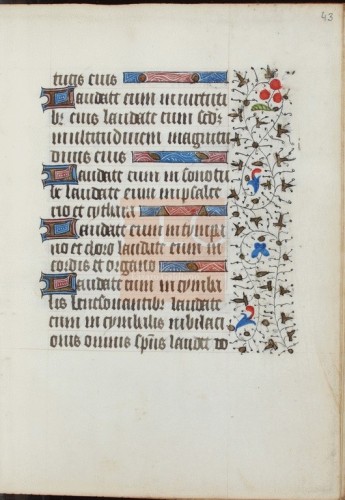 43
tutis eius
Laudate eum in virtuti
b eius laudate eum scdz
multitudinem magnitu
dinis eius
Laudate eum in sono tu
be laudate eum in psalte
rio et cythara
Laudate eum in tympa
no et choro laudate eum in
cordis et organo
Laudate eum in cymba
lis benesonantibz laudate
eum in cymbalis iubilaci
onis omnis spūs laudet do